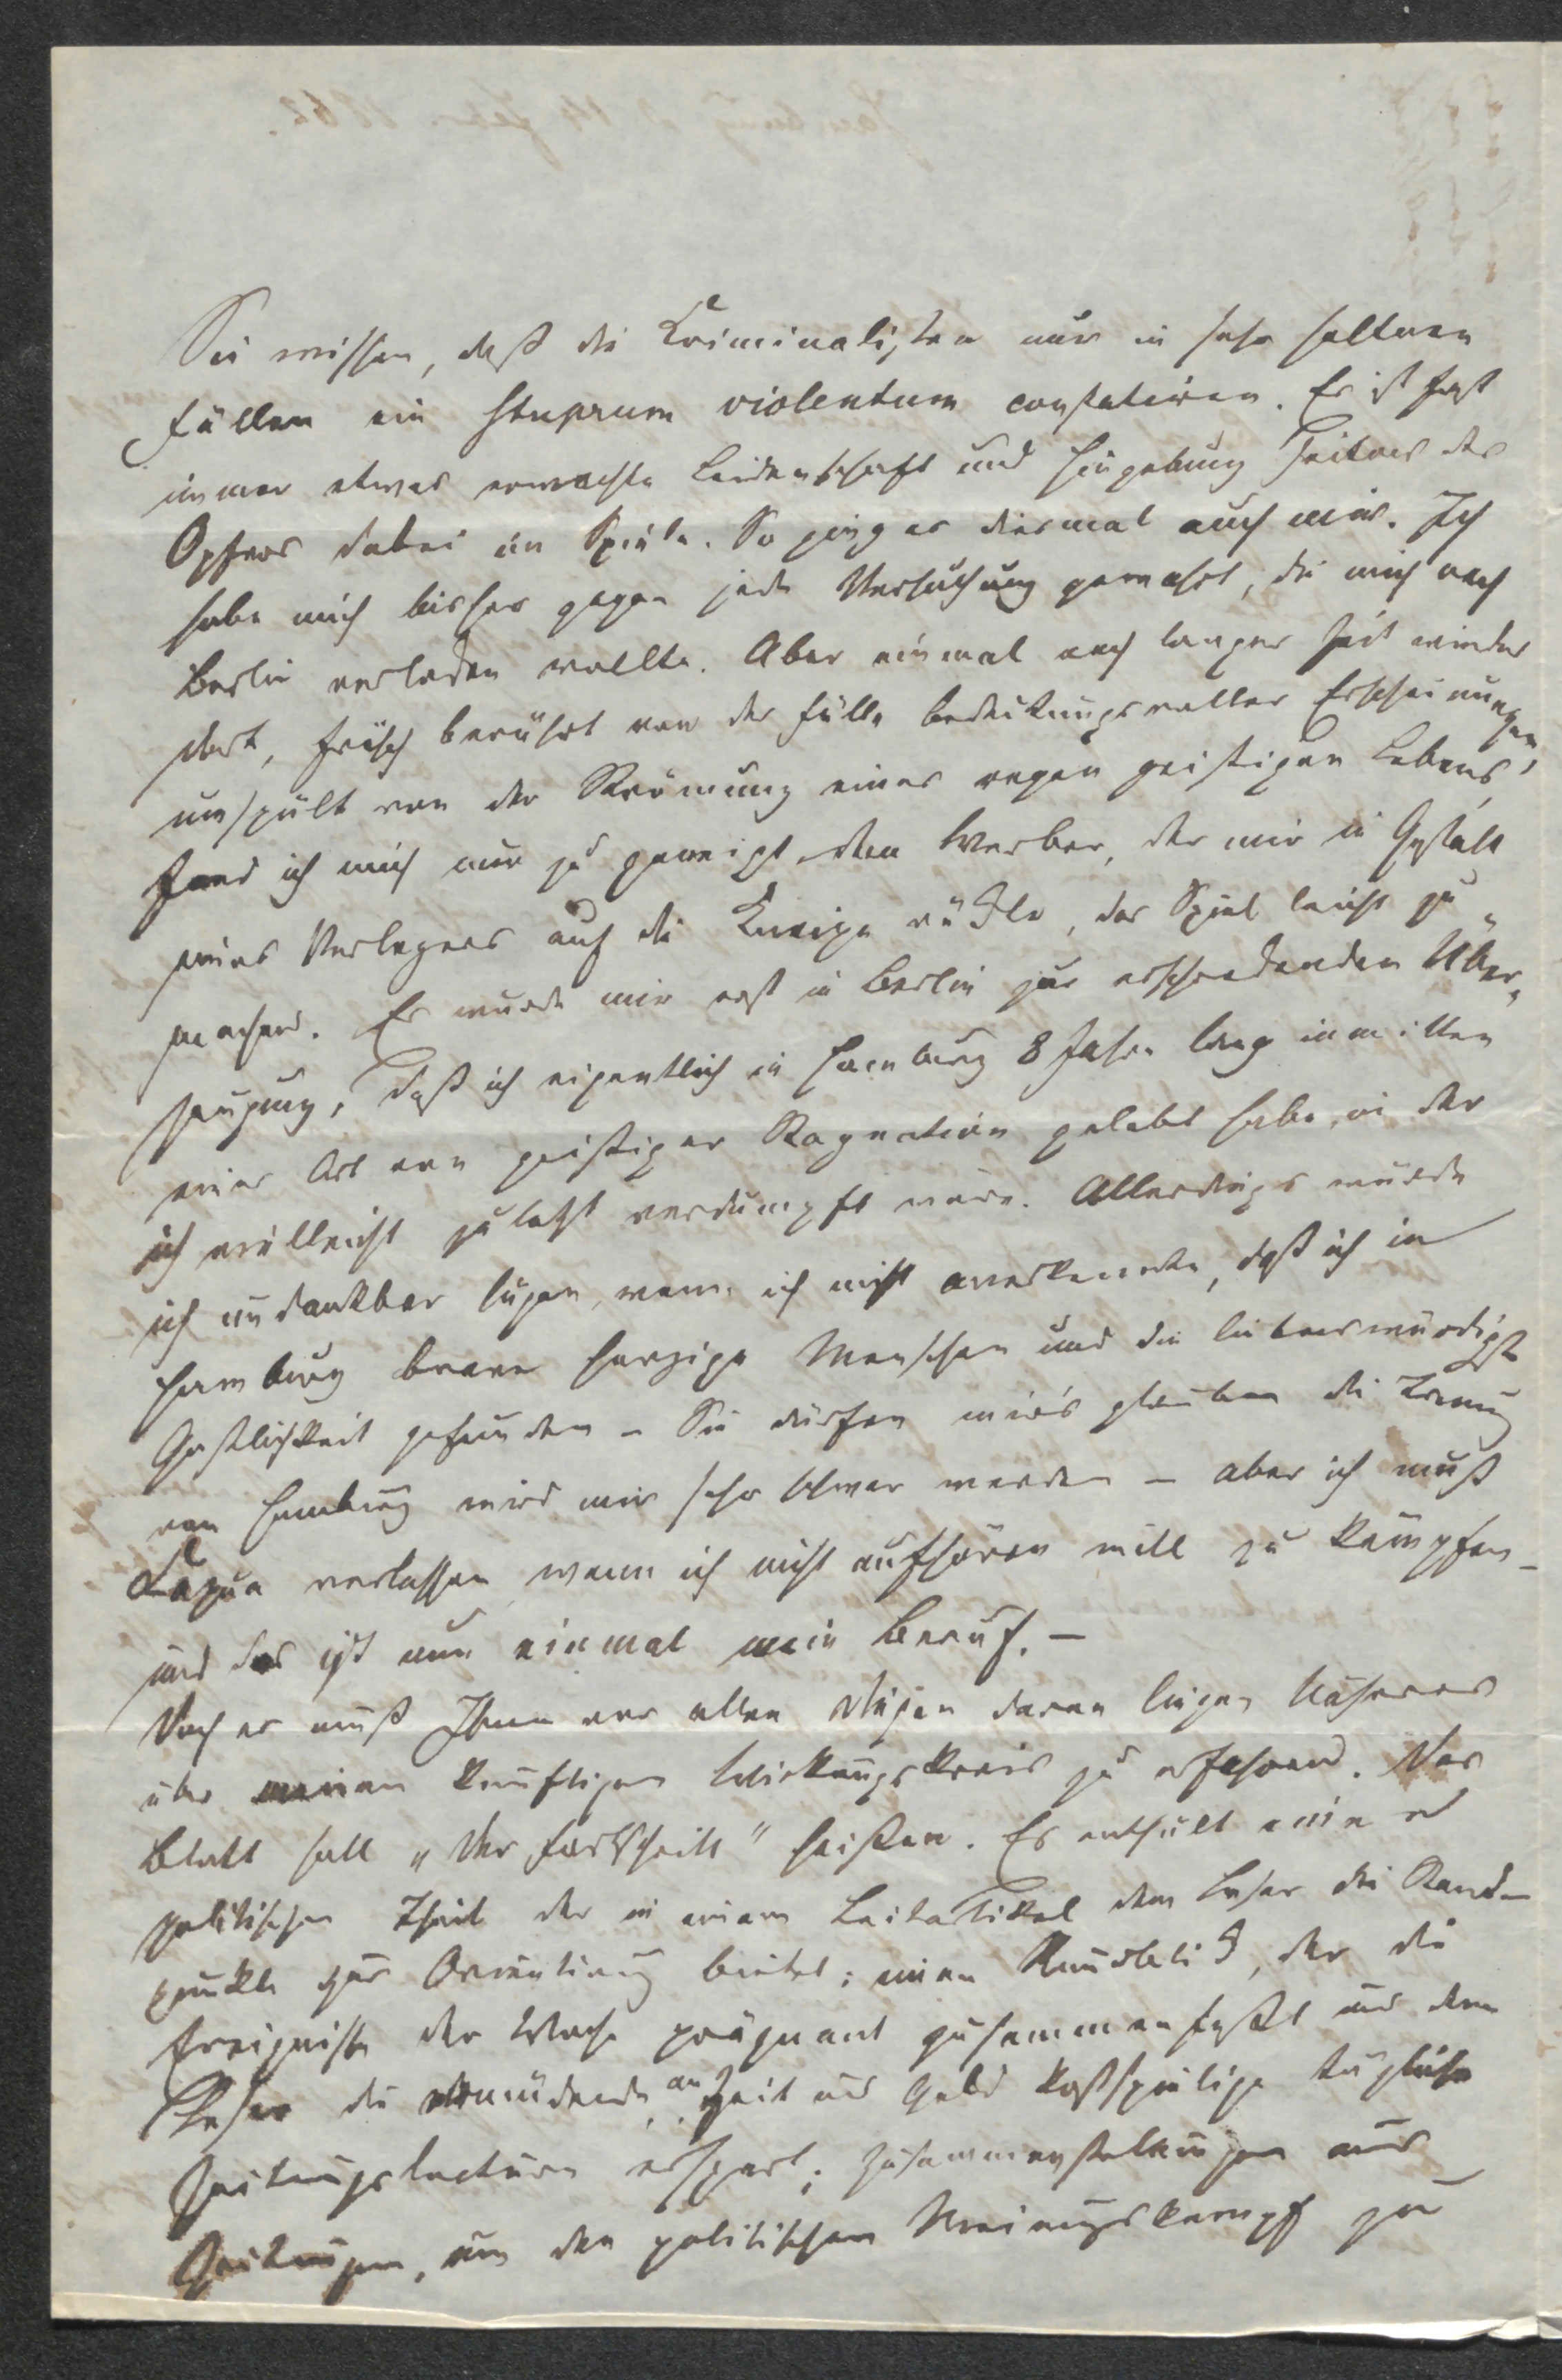 Sie wissen, daß die Kriminalisten nur in sehr seltenen
Fällen ein stuprum violentum constatiren. Es ist fast
immer etwas erwachte Leidenschaft und Hingebung Seitens des
Opfers dabei im Spiele. So ging es diesmal auch mir. Ich
habe mich bisher gegen jede Versuchung gewehrt, die mich nach
Berlin verlocken wollte. Aber einmal nach langer Zeit wieder
dort, frisch berührt von der Fülle bedeutungsvoller Erscheinungen,
umspült von der Strömung eines regen geistigen Lebens,
fand ich mich nur zu geneigt, dem Werber, der mir in Gestalt
eines Verlegers auf die Kneipe rückte, das Spiel leicht zu
machen. Es wurde mir erst in Berlin zur erschreckenden Über-
zeugung, daß ich eigentlich in Hamburg 8 Jahre lang inmitten
einer Art von geistiger Stagnation gelebt habe, in der
ich vielleicht zuletzt verdumpft wäre. Allerdings würde
ich undankbar lügen, wenn ich nicht anerkennete, daß ich in
Hamburg brave herzige Menschen und die liebenswürdigste
Gastlichkeit gefunden – Sie dürfen mir's glauben die Trennung
von Hamburg wird mir sehr schwer werden – aber ich muß
Capua verlassen, wenn ich nicht aufhören will zu kämpfen –
und das ist nun einmal mein Beruf. –
Doch es muß Ihnen vor allen Dingen daran liegen Näheres
über meinen künftigen Wirkungskreis zu erfahren. Das
Blatt soll „Der Fortschritt" heißen. Es enthält einen
politischen Theil der in einem Leitartikel dem Leser die Stand-
punkte zur Orientirung bietet; einen Rundblick, der die
Ereignisse der Woche prägnant zusammenfaßt und dem
Leser die ermüdende, an Zeit und Geld kostspielige tägliche
Zeitungslectüre erspart; Zusammenstellungen aus
Zeitungen, um den politischen Meinungskampf zu